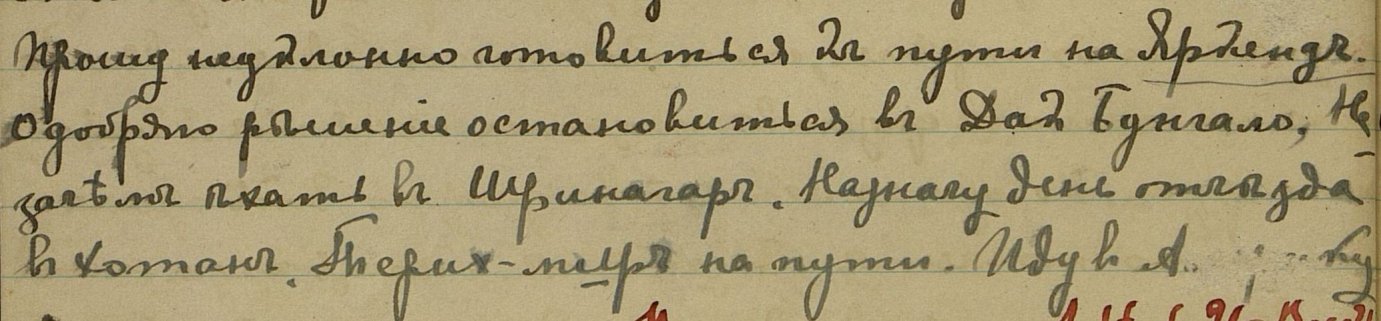 Прошу неуклонно готовиться къ пути на Яркендъ.
Одобряю рѣшеніе остановиться въ Дак Бунгало, Не
зачѣмъ ѣхать въ Шринагаръ. Назначу день отъѣзда
въ Хотанъ. Терих-миръ на пути. Иду в